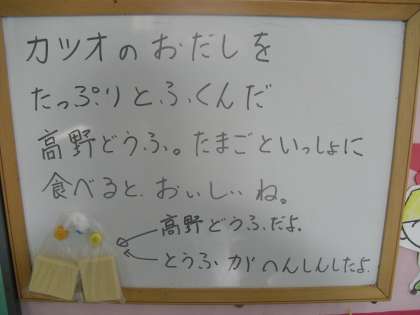 カツオのおだしを
たっぷりとふくんだ
高野どうふ。たまごといっしょに
食べると、おいしいね。
高野どうふだよ。
とうふがへんしんしたよ。